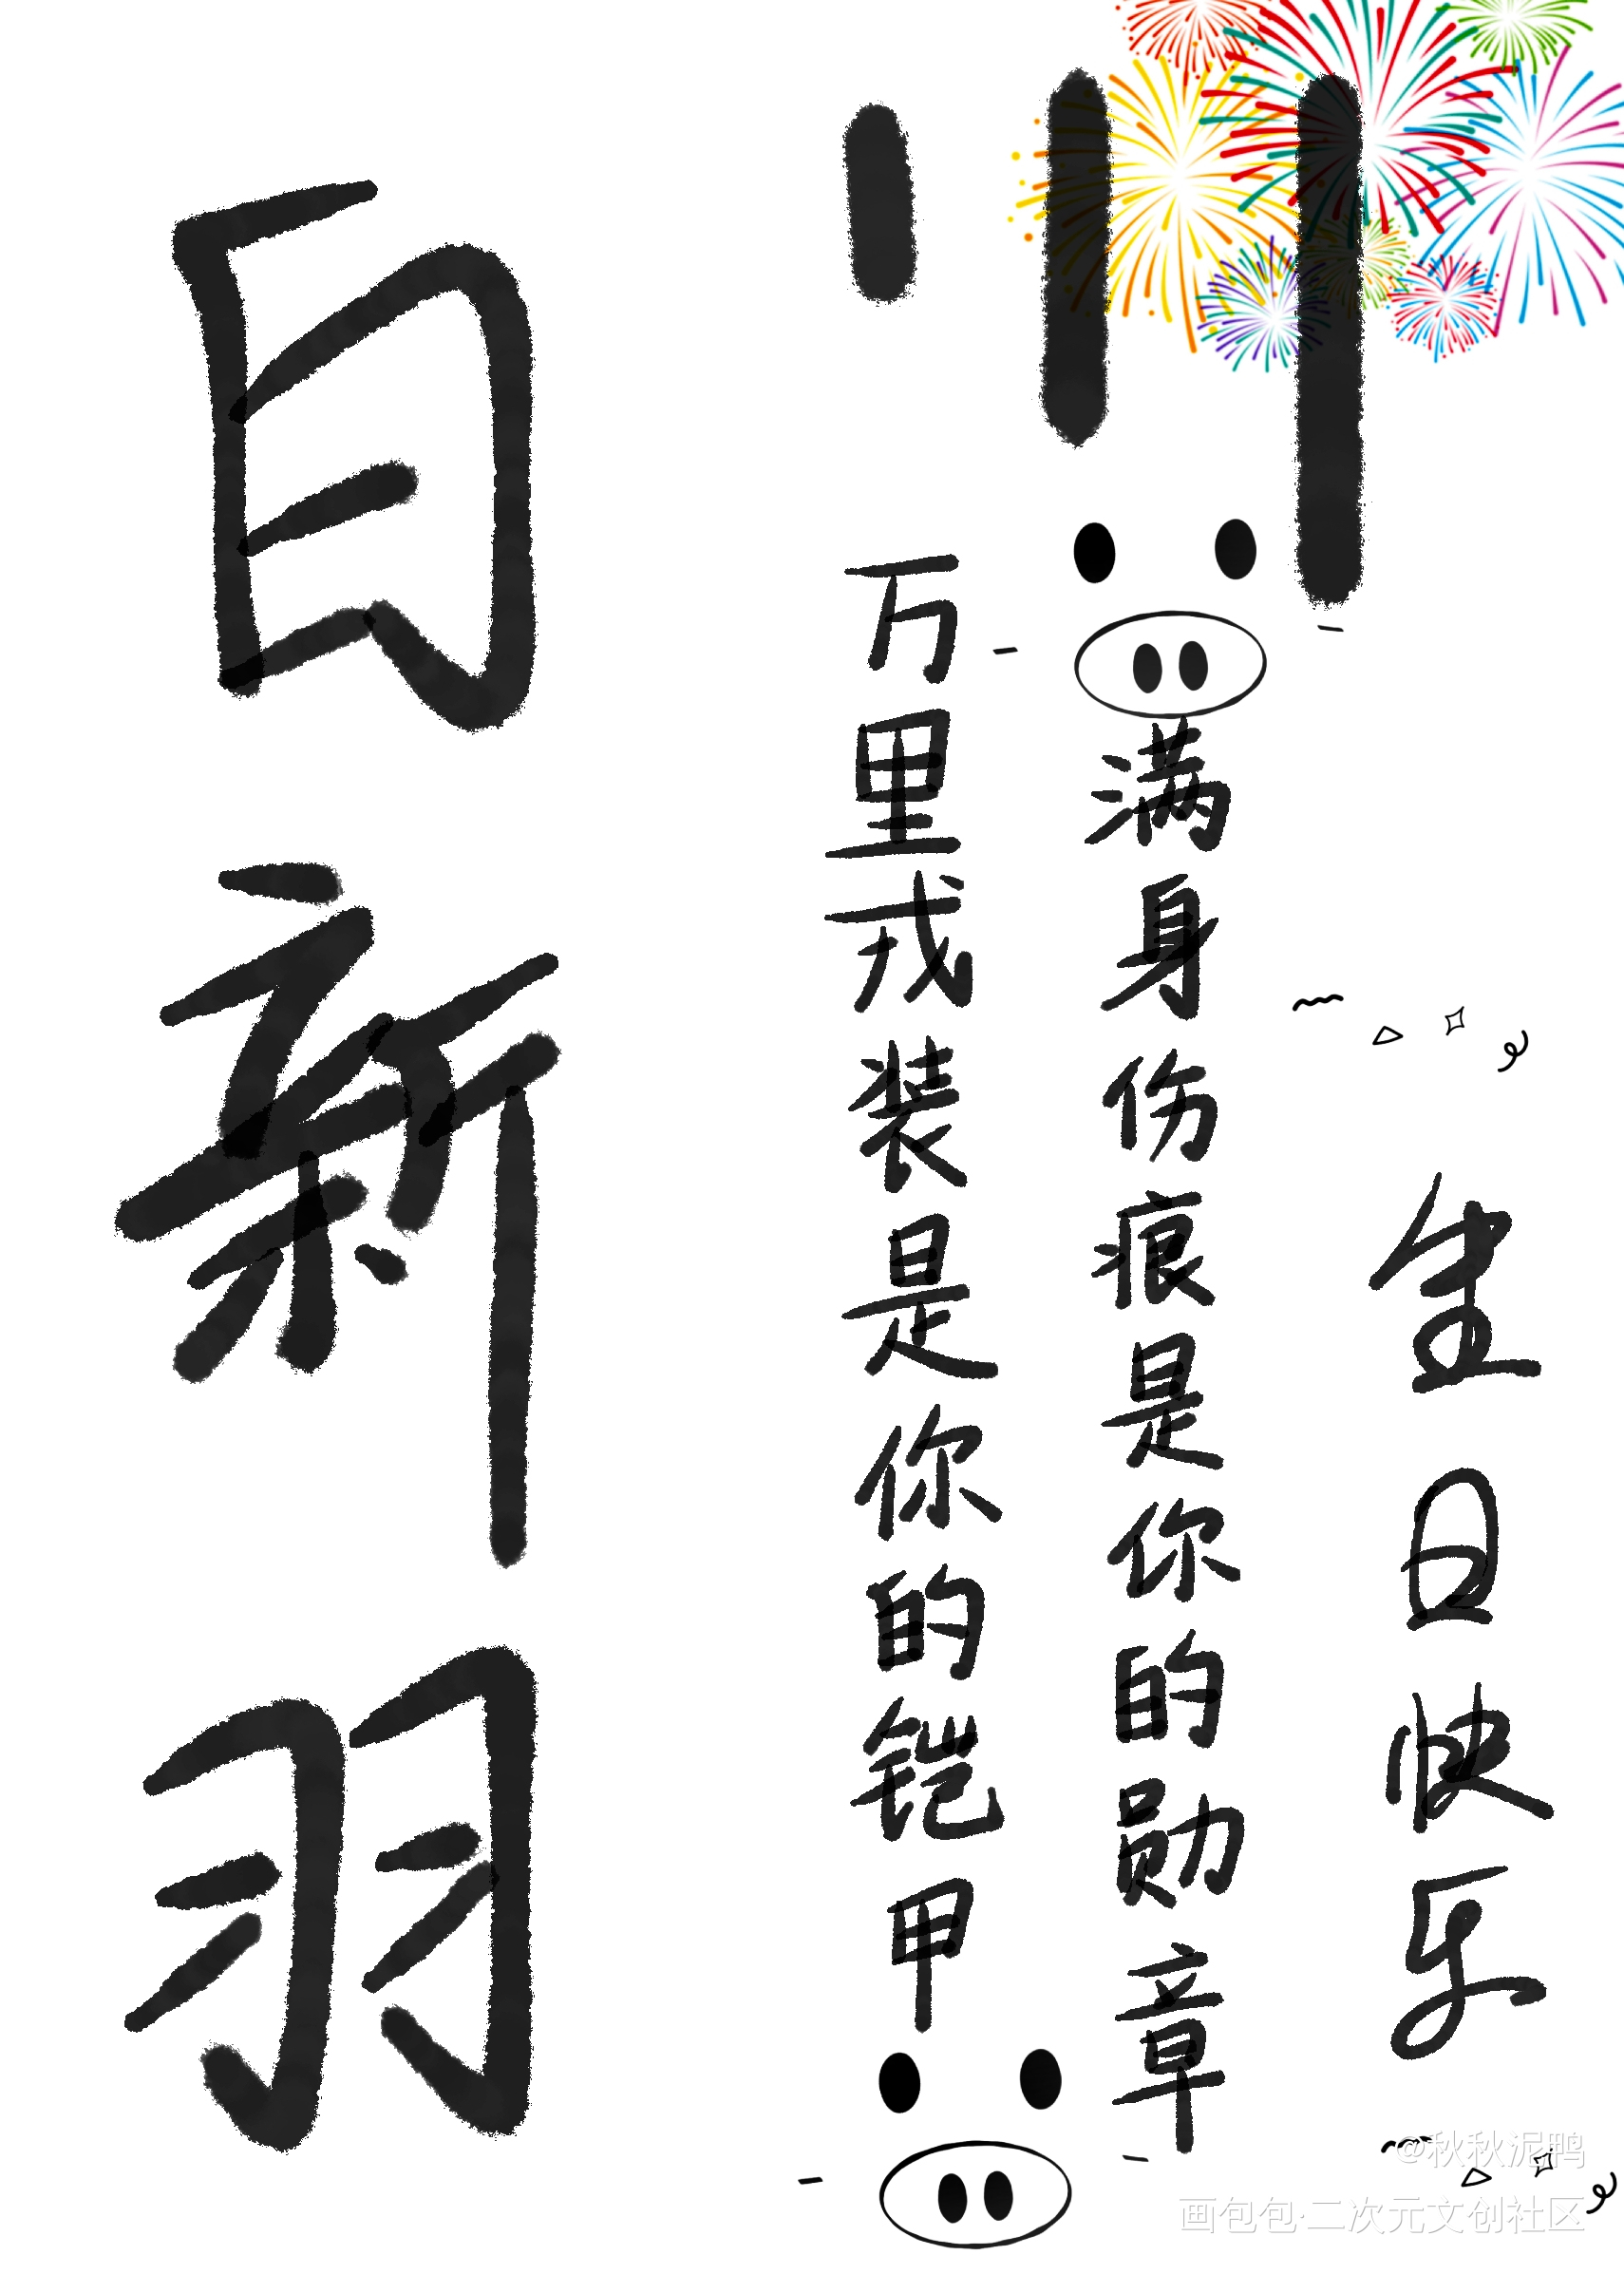 生日快乐
满身伤痕是你的勋章
万里戎装是你的铠甲
白新羽
@秋秋泥鸭
画包包·二次元文创社区